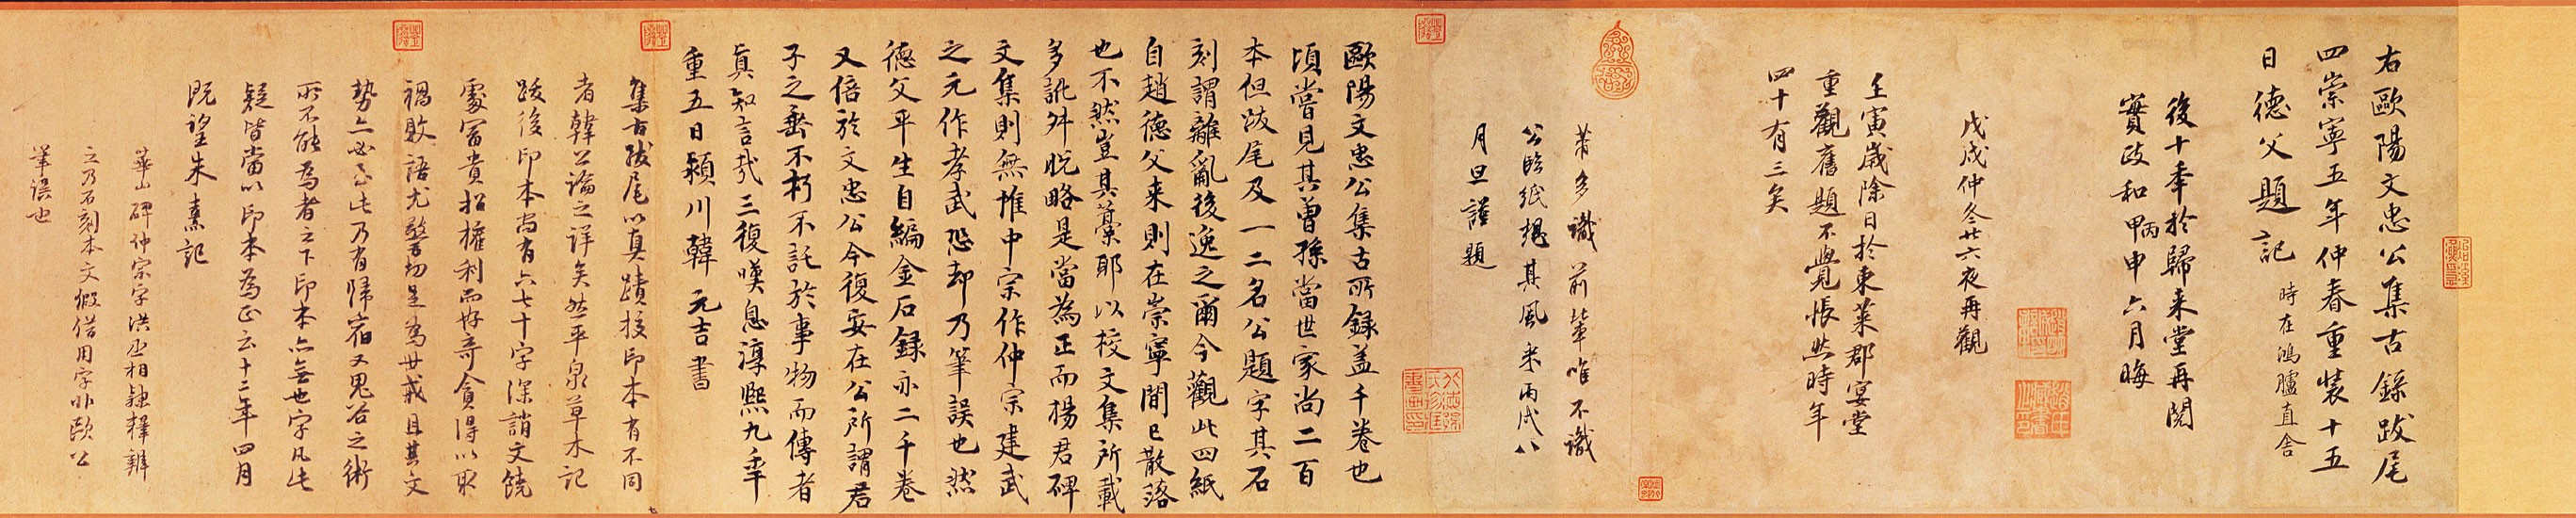 右歐陽文忠公集古錄跋尾
四崇寧五年仲春重裝十五
日德父題記 時在鴻臚直舍
後十年於歸来堂再閱
實政和甲丙申六月晦
戊戌仲冬廿六夜再觀
壬寅歲除日於東萊郡宴堂
重觀舊題不覺悵然時年
四十有三矣
芾多識前輩唯不識
公臨紙想其風采丙戌八
月旦謹題
歐陽文忠公集古所録盖千卷也
頃嘗見其曾孫當世家尚二百
本但跋尾及一二名公題字其石
刻謂離亂後逸之爾今觀此四紙
自趙德父来則在崇寧間已散落
也不然豈其藁耶以校文集所載
多訛舛脱略是當為正而楊君碑
文集則無惟中宗作仲宗建武
之元作孝武恐却乃筆誤也然
德父平生自編金石録亦二千卷
又倍於文忠公今復安在公所謂君
子之垂不朽不託於事物而傳者
真知言哉三復嘆息淳熙九年
重五日潁川韓元吉書
集古跋尾以真蹟校印本有不同
者韓公論之詳矣然平泉草木記
跋後印本尚有六七十字深誚文饒
處富貴招權利而好奇貪得以取
禍敗語尤警切足為世戒且其文
勢亦必至此乃有歸宿又鬼谷之術
所不能為者之下印本亦無也字凡此
疑皆當以印本為正云十二年四月
既望朱熹記
華山碑仲宗字洪丞相隸釋辨
之乃石刻本文假借用字非歐公
筆誤也